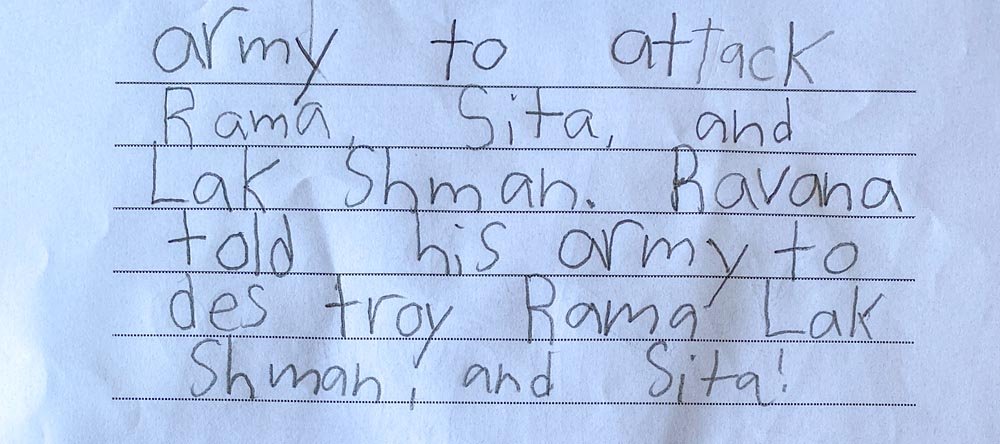 army to attack
Rama, Sita, and
Lak Shman. Ravana
told his army to
des troy Rama, Lak
Shman, and Sita!